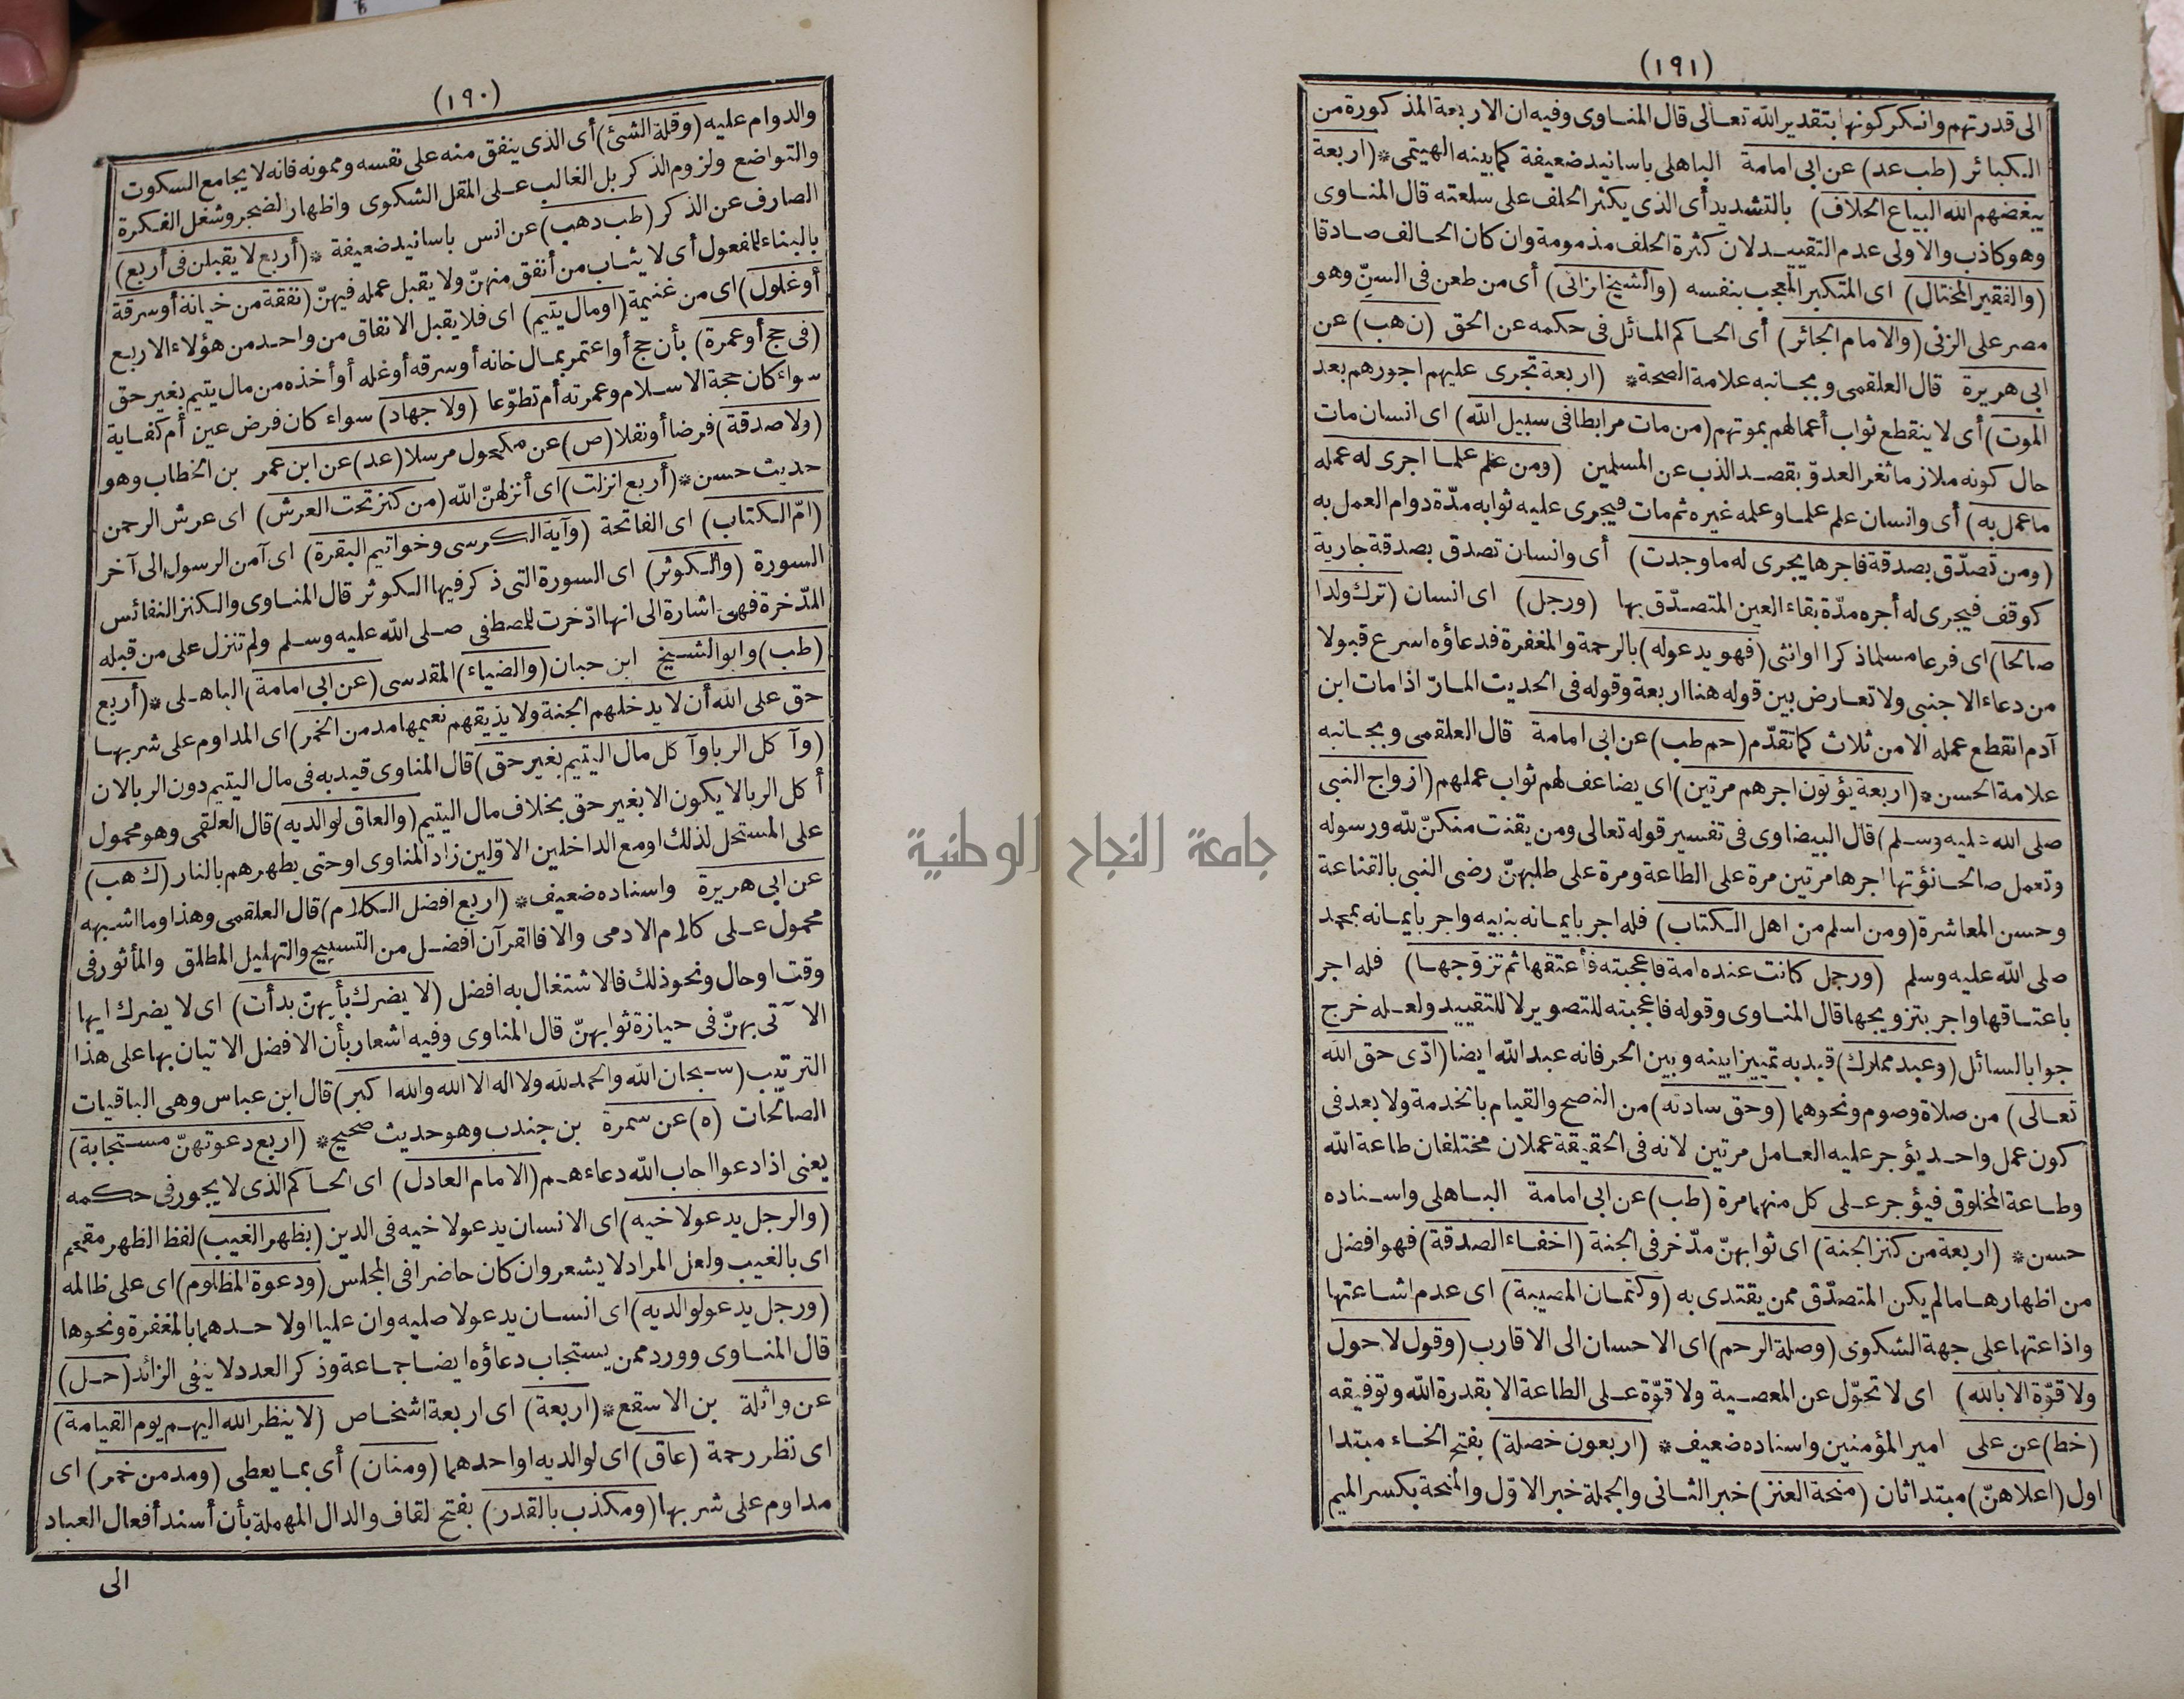 (١٩٠)
والدوام عليه (وقلة الشئ) أى الذى ينفق منه على نفسه وممونه فانه لا يجامع السكوت
والتواضع ولزوم الذكر بل الغالب على المقل الشكوى واظهار الضجر وشغل الفكرة
الصارف عن الذكر (طب ك هب) عن انس باسانيد ضعيفة * (أربع لا يقبلن فى أربع)
بالبناء للمفعول أى لا يثاب من أنفق منهنّ ولا يقبل عمله فيهنّ (نفقة من خيانة أو سرقة
أو غلول) اى من غنيمة (او مال يتيم) اى فلا يقبل الانفاق من واحد من هؤلاء الاربع
(فى حج أو عمرة) بأن حج أو اعتمر بمال خانه أو سرقه أو غله أو أخذه من مال يتيم بغير حق
سواء كان حجة الاسلام وعمرته أم تطوّعا (ولا جهاد) سواء كان فرض عين أم كفاية
(ولا صدقة) فرضا أو نفلا (ص) عن مكحول مرسلا (عد) عن ابن عمر بن الخطاب وهو
حديث حسن * (أربع انزلت) اى أنزلهنّ الله (من كنز تحت العرش) اى عرش الرحمن
(امّ الكتاب) اى الفاتحة (وآية الكرسى وخواتيم البقرة) اى آمن الرسول الى آخر
السورة (والكوثر) اى السورة التى ذكر فيها الكوثر قال المناوى والكنز النفائس
المدّخرة فهى اشارة الى انها ادّخرت للمصطفى صلى الله عليه وسلم ولم تنزل على من قبله
(طب) وابو الشيخ ابن حبان (والضياء) المقدسى (عن ابى امامة) الباهلى * (أربع
حق على الله أن لا يدخلهم الجنة ولا يذيقهم نعيمها مدمن الخمر) اى المداوم على شربها
(وآكل الربا وآكل مال اليتيم بغير حق) قال المناوى قيد به فى مال اليتيم دون الربا لان
أكل الربا لا يكون الا بغير حق بخلاف مال اليتيم (والعاق لوالديه) قال العلقمى وهو محمول
على المستحل لذلك او مع الداخلين الاوّلين زاد المناوى او حتى يطهرهم بالنار (ك هب)
عن ابى هريرة واسناده ضعيف * (اربع افضل الكلام) قال العلقمى وهذا وما اشبهه
محمول على كلام الادمى والا فالقرآن أفضل من التسبيح والتهليل المطلق والمأثور فى
وقت او حال ونحو ذلك فالاشتغال به افضل (لا يضرك بأيهنّ بدأت) اى لا يضرك ايها
الآتى بهنّ فى حيازة ثوابهنّ قال المناوى وفيه اشعار بأن الافضل الاتيان بها على هذا
الترتيب (سبحان الله والحمد لله ولا اله الا الله والله اكبر) قال ابن عباس وهى الباقيات
الصالحات (ه) عن سمرة بن جندب وهو حديث صحيح * (اربع دعوتهنّ مستجابة)
يعنى اذا دعوا اجاب الله دعاءهم (الامام العادل) اى الحاكم الذى لا يجور فى حكمه
(والرجل يدعو لاخيه) اى الانسان يدعو لاخيه فى الدين (بظهر الغيب) لفظ الظهر مقحم
اى بالغيب ولعل المراد لا يشعر وان كان حاضرا فى المجلس (ودعوة المظلوم) اى على ظالمه
(ورجل يدعو لوالديه) اى انسان يدعو لاصليه وان عليا او لاحدهما بالمغفرة ونحوها
قال المناوى وورد ممن يستجاب دعاؤه ايضا جماعة وذكر العدد لا ينفى الزائد (حل)
عن واثلة بن الاسقع * (اربعة) اى اربعة اشخاص (لا ينظر الله اليهم يوم القيامة)
اى نظر رحمة (عاق) اى لوالديه او احدهما (ومنان) أى بما يعطى (ومدمن خمر) اى
مداوم على شربها (ومكذب بالقدر) بفتح القاف والدال المهملة بأن أسند أفعال العباد
الى
(١٩١)
الى قدرتهم وانكر كونها بتقدير الله تعالى قال المناوى وفيه ان الاربعة المذكورة من
الكبائر (طب عد) عن ابى امامة الباهلى باسانيد ضعيفة كما بينه الهيتمى * (اربعة
يبغضهم الله البياع الحلاف) بالتشديد أى الذى يكثر الحلف على سلعته قال المناوى
وهو كاذب والاولى عدم التقييد لان كثرة الحلف مذمومة وان كان الحالف صادقا
(والفقير المختال) اى المتكبر المعجب بنفسه (والشيخ الزانى) أى من طعن فى السنّ وهو
مصر على الزنى (والامام الجائر) أى الحاكم المائل فى حكمه عن الحق (ن هب) عن
ابى هريرة قال العلقمى وبجانبه علامة الصحة * (اربعة تجرى عليهم اجورهم بعد
الموت) أى لا ينقطع ثواب أعمالهم بموتهم (من مات مرابطا فى سبيل الله) اى انسان مات
حال كونه ملازما ثغر العدوّ بقصد الذب عن المسلمين (ومن علم علما اجرى له عمله
ما عمل به) أى وانسان علم علما وعلمه غيره ثم مات فيجرى عليه ثوابه مدّة دوام العمل به
(ومن تصدّق بصدقة فاجرها يجرى له ما وجدت) أى وانسان تصدق بصدقة جارية
كوقف فيجرى له أجره مدّة بقاء العين المتصدّق بها (ورجل) اى انسان (ترك ولدا
صالحا) اى فرعا مسلما ذكرا او انثى (فهو يدعو له) بالرحمة والمغفرة فدعاؤه اسرع قبولا
من دعاء الاجنبى ولا تعارض بين قوله هنا اربعة وقوله فى الحديث المارّ اذا مات ابن
آدم انقطع عمله الا من ثلاث كما تقدّم (حم طب) عن ابى امامة قال العلقمى وبجانبه
علامة الحسن * (اربعة يؤتون اجرهم مرتين) اى يضاعف لهم ثواب عملهم (ازواج النبى
صلى الله عليه وسلم) قال البيضاوى فى تفسير قوله تعالى ومن يقنت منكنّ لله ورسوله
وتعمل صالحا نؤتها اجرها مرتين مرة على الطاعة ومرة على طلبهنّ رضى النبى بالقناعة
وحسن المعاشرة (ومن اسلم من اهل الكتاب) فله اجر بايمانه بنبيه واجر بايمانه بمحمد
صلى الله عليه وسلم (ورجل كانت عنده امة فاعجبته فأعتقها ثم تزوّجها) فله اجر
باعتاقها واجر بتزويجها قال المناوى وقوله فاعجبته للتصوير لا للتقييد ولعله خرج
جوابا لسائل (وعبد مملوك) قيد به تمييزا بينه وبين الحر فانه عبد الله ايضا (ادّى حق الله
تعالى) من صلاة وصوم ونحوهما (وحق سادته) من النصح والقيام بالخدمة ولا بعد فى
كون عمل واحد يؤجر عليه العامل مرتين لانه فى الحقيقة عملان مختلفان طاعة الله
وطاعة المخلوق فيؤجر على كل منهما مرة (طب) عن ابى امامة الباهلى واسناده
حسن * (اربعة من كنز الجنة) اى ثوابهنّ مدّخر فى الجنة (اخفاء الصدقة) فهو افضل
من اظهارها ما لم يكن المتصدّق ممن يقتدى به (وكتمان المصيبة) اى عدم اشاعتها
واذاعتها على جهة الشكوى (وصلة الرحم) اى الاحسان الى الاقارب (وقول لا حول
ولا قوّة الا بالله) اى لا تحوّل عن المعصية ولا قوّة على الطاعة الا بقدرة الله وتوفيقه
(خط) عن على امير المؤمنين واسناده ضعيف * (اربعون خصلة) بفتح الخاء مبتدا
اول (اعلاهنّ) مبتدا ثان (منحة العنز) خبر الثانى والجملة خبر الاوّل والمنحة بكسر الميم
جامعة النجاح الوطنية